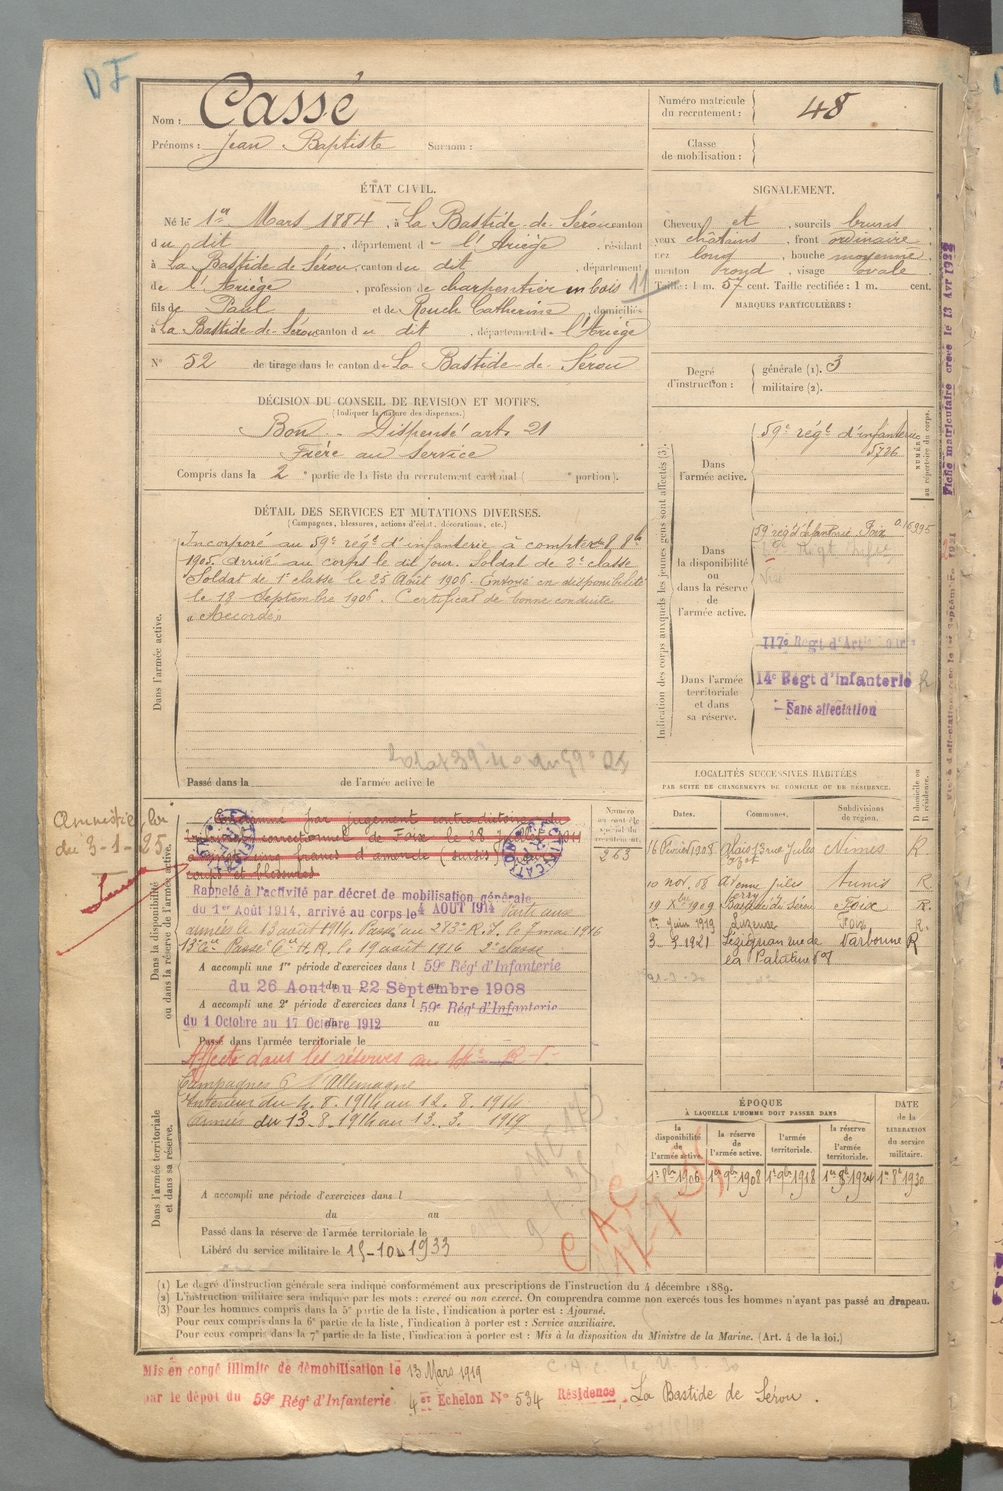 DF
Nom : Cassé
Prénoms : Jean Baptiste Surnom :
Numéro matricule du recrutement : 48
Classe de mobilisation :
ÉTAT CIVIL.
Né le 1er Mars 1884, à La Bastide-de-Sérou canton
du dit, département de l'Ariège, résidant
à La Bastide de Sérou, canton du dit, département
de l'Ariège, profession de charpentier en bois 11
fils de Paul et de Rouch Catherine, domiciliés
à La Bastide-de-Sérou canton du dit, département de l'Ariège
N° 52 de tirage dans le canton de La Bastide-de-Sérou
SIGNALEMENT.
Cheveux et, sourcils bruns
yeux châtains, front ordinaire,
nez long, bouche moyenne,
menton rond, visage ovale
Taille : 1 m. 57 cent. Taille rectifiée : 1 m. cent.
MARQUES PARTICULIÈRES :
Degré d'instruction : générale (1). 3
militaire (2).
DÉCISION DU CONSEIL DE REVISION ET MOTIFS.
(Indiquer la nature des dispenses.)
Bon - Dispensé art. 21
Frère au service
Compris dans la 2e partie de la liste du recrutement cantonal ( e portion).
DÉTAIL DES SERVICES ET MUTATIONS DIVERSES.
(Campagnes, blessures, actions d'éclat, décorations, etc.)
Dans l'armée active.
Incorporé au 59e régt d'infanterie à compter du 8 8bre
1905. Arrivé au corps le dit jour. Soldat de 2e classe
Soldat de 1e classe le 25 Août 1906. Envoyé en disponibilité
le 18 Septembre 1906. Certificat de bonne conduite
"Accordé"
Passé dans la de l'armée active le
Indication des corps auxquels les jeunes gens sont affectés (3).
NUMÉRO au répertoire du corps.
Dans l'armée active.
59e régt d'infanterie
5726
Dans la disponibilité ou dans la réserve de l'armée active.
59 régt d'infanterie Foix
Dans l'armée territoriale et dans sa réserve.
117e Régt d'Art
14e Régt d'Infanterie R
Sans affectation
Fiche matriculaire créée le 13 Avr 1922
Amnistie loi
du 3-1-25
Dans la disponibilité ou dans la réserve de l'armée active.
Numéro au contrôle spécial du recrutement.
263
Condamné par jugement contradictoire du
tribunal correctionnel de Foix le 28
cinq francs d'amende (sursis)
coups et blessures
Rappelé à l'activité par décret de mobilisation générale
du 1er Août 1914, arrivé au corps le 4 AOUT 1914 Parti aux
armées le 13 août 1914. Passé au 283e R.I. le 7 mai 1916
13e Cie Passé Cie H.R. le 19 août 1916 2e classe
A accompli une 1re période d'exercices dans l 59e Régt d'Infanterie
du 26 Aout au 22 Septembre 1908
A accompli une 2e période d'exercices dans l 59e Régt d'Infanterie
du 1 Octobre au 17 Octobre 1912
Passé dans l'armée territoriale le
Affecté dans les réserves au 14e R.I.
LOCALITÉS SUCCESSIVES HABITÉES
PAR SUITE DE CHANGEMENTS DE DOMICILE OU DE RÉSIDENCE.
Dates. Communes. Subdivisions de région. D domicile ou R résidence.
16 Février 1908 Alais 13 rue Jules Nîmes R
10 nov. 08 Avenue Jules Ferry Tunis R
19 Xbre 1909 Bastide de Sérou Foix R.
1er Juin 1919 Luzenac Foix R.
3-3-1921 Lézignan rue de Narbonne R
la Palatine
Dans l'armée territoriale et dans sa réserve.
Campagnes C. l'Allemagne
Intérieur du 4.8.1914 au 12.8.1914
Armées du 13.8.1914 au 13.3.1919
A accompli une période d'exercices dans l
du au
Passé dans la réserve de l'armée territoriale le
Libéré du service militaire le 15-10-1933
ÉPOQUE
À LAQUELLE L'HOMME DOIT PASSER DANS
la disponibilité de l'armée active. la réserve de l'armée active. l'armée territoriale. la réserve de l'armée territoriale.
DATE de la LIBÉRATION du service militaire.
1er 9bre 1906 1er 9bre 1908 1er 9bre 1918 1er 8bre 1924 1er 8bre 1930
CAC
(1) Le degré d'instruction générale sera indiqué conformément aux prescriptions de l'instruction du 4 décembre 1889.
(2) L'instruction militaire sera indiquée par les mots : exercé ou non exercé. On comprendra comme non exercés tous les hommes n'ayant pas passé au drapeau.
(3) Pour les hommes compris dans la 5e partie de la liste, l'indication à porter est : Ajourné.
Pour ceux compris dans la 6e partie de la liste, l'indication à porter est : Service auxiliaire.
Pour ceux compris dans la 7e partie de la liste, l'indication à porter est : Mis à la disposition du Ministre de la Marine. (Art. 4 de la loi.)
Mis en congé illimité de démobilisation le 13 Mars 1919
par le dépôt du 59e Régt d'Infanterie 4e Echelon N° 534 Résidence La Bastide de Sérou.